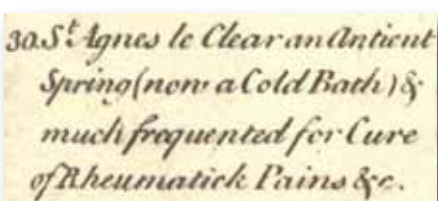 30. St Agnes le Clear an Antient
Spring (now a Cold Bath) &
much frequented for Cure
of Rheumatick Pains &c.